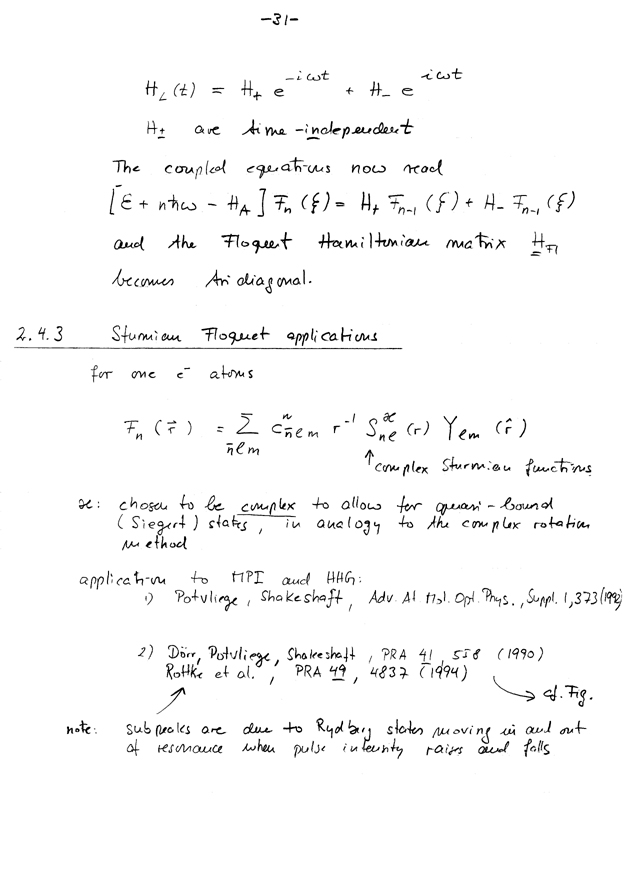 -31-
H_L(t) = H_+ e^{-iωt} + H_- e^{iωt}
H_± are time-independent
The coupled equations now read
[ε + nħω - H_A] F_n(ξ) = H_+ F_{n-1}(ξ) + H_- F_{n-1}(ξ)
and the Floquet Hamiltonian matrix H_{Fl}
becomes tridiagonal.
2.4.3 Sturmian Floquet applications
for one e⁻ atoms
F_n(r⃗) = Σ_{n̄lm} C^n_{n̄lm} r^{-1} S^ϰ_{nl}(r) Y_{lm}(r̂)
↑ complex Sturmian functions
ϰ: chosen to be complex to allow for quasi-bound
(Siegert) states, in analogy to the complex rotation
method
application to MPI and HHG:
1) Potvliege, Shakeshaft, Adv. At Mol. Opt. Phys., Suppl. 1, 373 (1992)
2) Dörr, Potvliege, Shakeshaft, PRA 41, 558 (1990)
Rottke et al., PRA 49, 4837 (1994)
→ cf. Fig.
note: subpeaks are due to Rydberg states moving in and out
of resonance when pulse intensity raises and falls